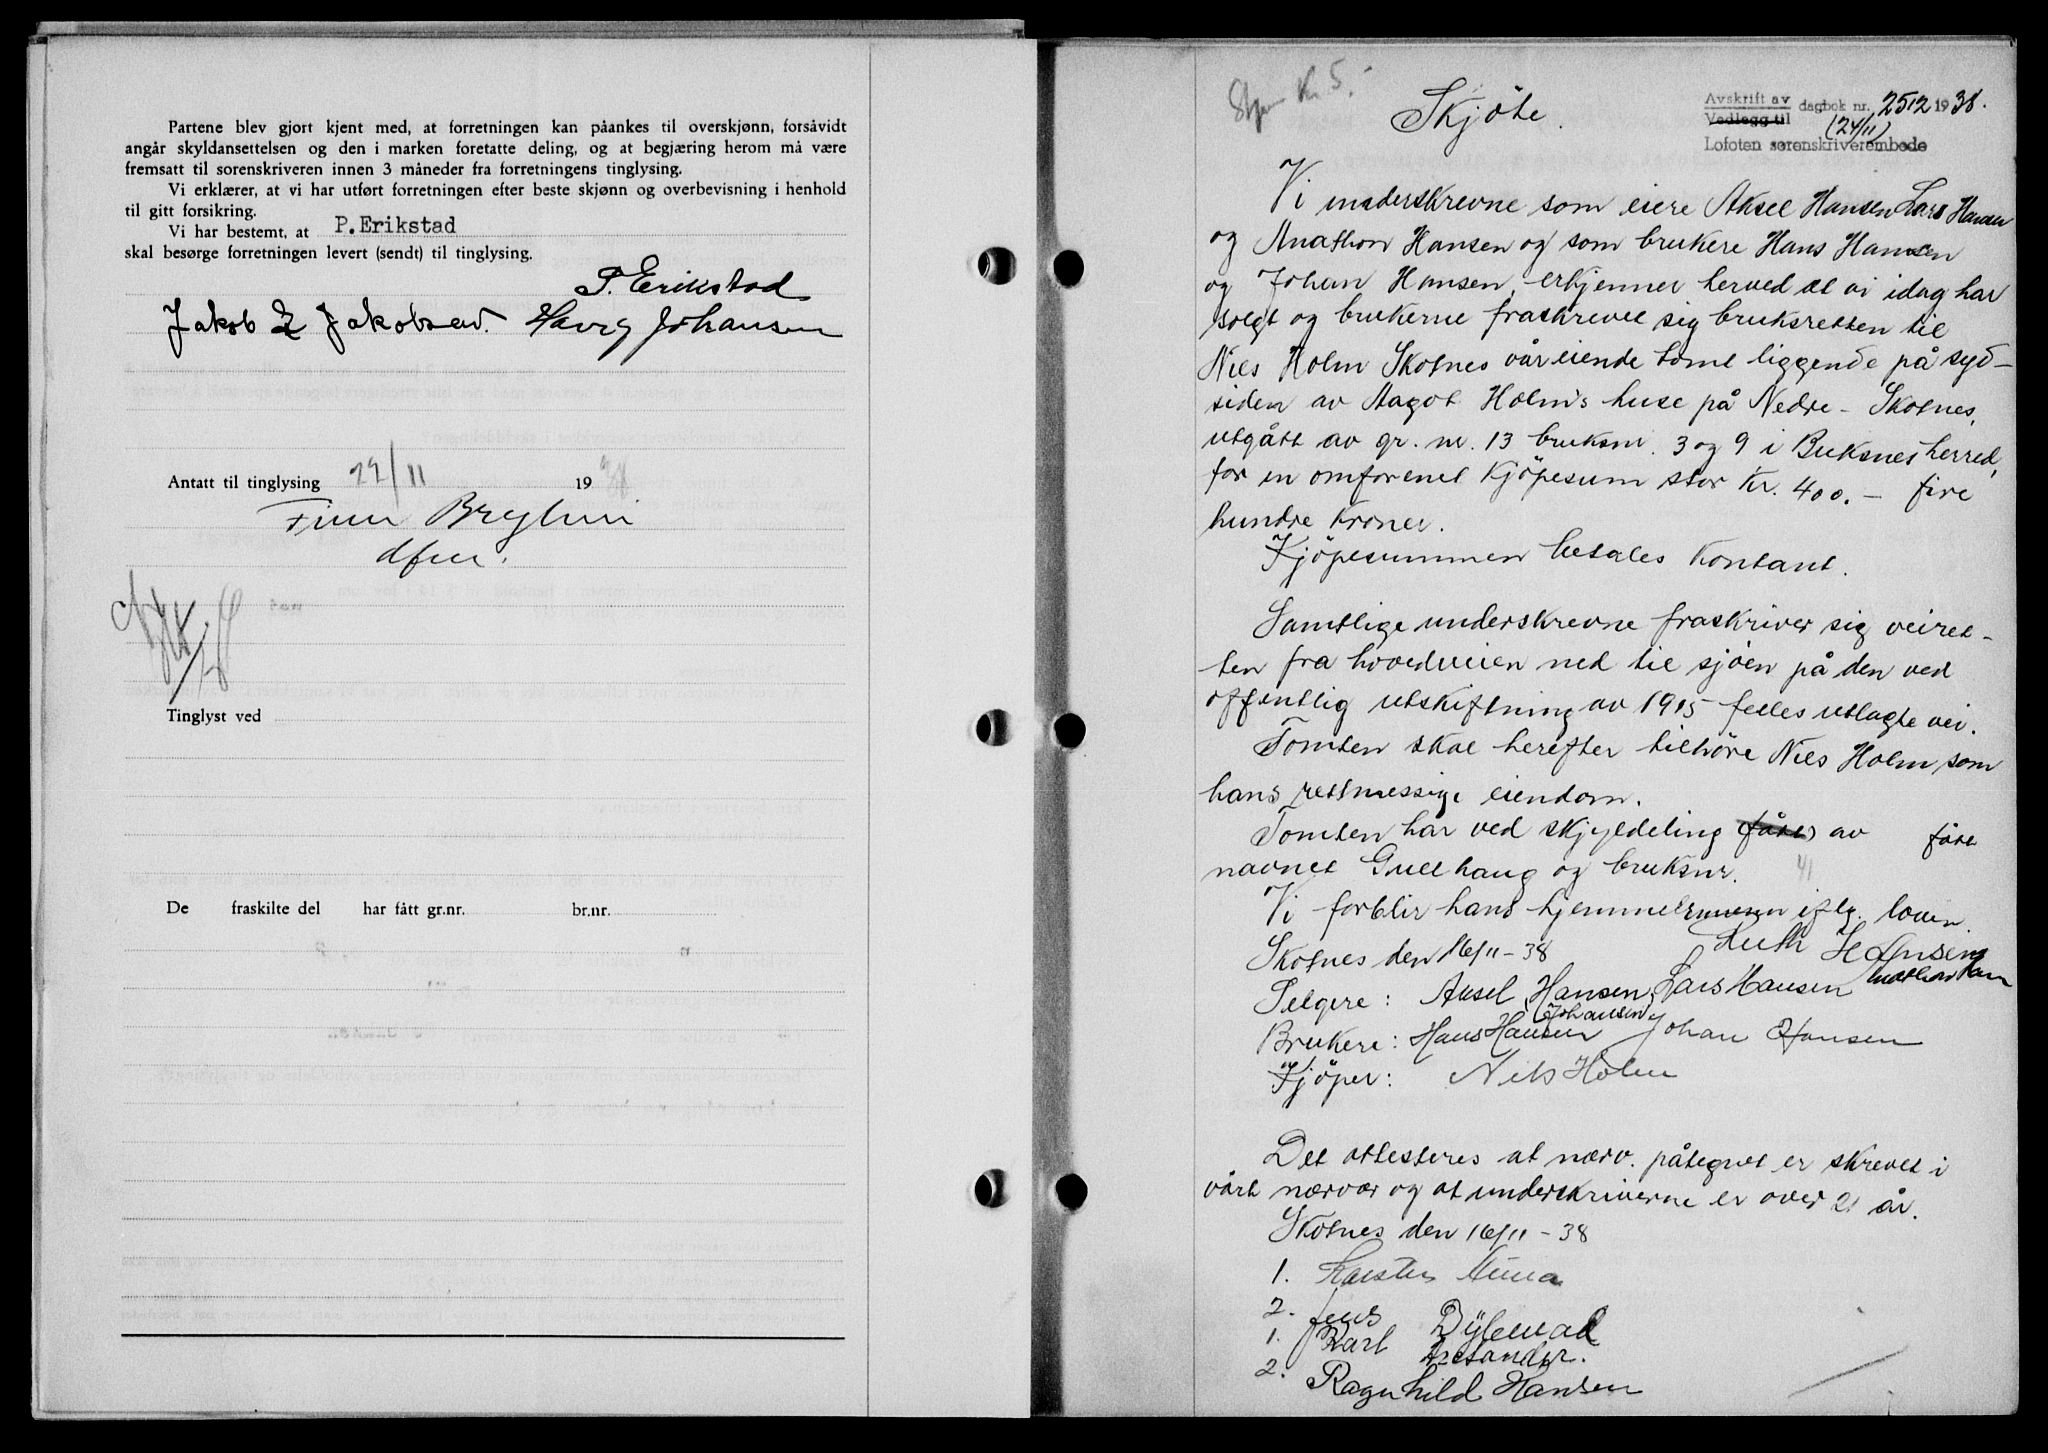 Partene blev gjort kjent med, at forretningen kan påankes til overskjønn, forsåvidt
angår skyldansettelsen og den i marken foretatte deling, og at begjæring herom må være
fremsatt til sorenskriveren innen 3 måneder fra forretningens tinglysing.
Vi erklærer, at vi har utført forretningen efter beste skjønn og overbevisning i henhold
til gitt forsikring.
Vi har bestemt, at P.Erikstad
skal besørge forretningen levert (sendt) til tinglysing.
P. Erikstad
Jakob Jakobsen. Havig Johansen
Antatt til tinglysing 22/11 1938
Finn Bryhni
dfm.
Tinglyst ved
De fraskilte del har fått gr.nr. br.nr.
Kr. 5.-
Skjöte.
Avskrift av
Vedlegg til dagbok nr. 2512 1938.
(24/11)
Lofoten sorenskriverembede
Vi underskrevne som eiere Aksel Hansen Lars Hansen
og Anathon Hansen og som brukere Hans Hansen
og Johan Hansen, erkjenner herved at vi idag har
solgt og brukerne fraskrevet sig bruksretten til
Nils Holm Skotnes vår eiende tomt liggende på syd-
siden av Aagot Holm's huse på Nedre - Skotnes,
utgått av gr. nr. 13 bruksnr. 3 og 9 i Buksnes herred,
for en omforenet kjöpesum stor kr. 400.- fire
hundre kroner.
Kjöpesummen betales kontant.
Samtlige underskrevne fraskriver sig veiret-
ten fra hovedveien ned til sjöen på den ved
offentlig utskiftning av 1915 felles utlagte vei.
Tomten skal herefter tilhöre Nils Holm som
hans rettmessige eiendom.
Tomten har ved skjyldeling fått av fått
navnet Gullhaug og bruksnr. 41
Vi forblir hans hjemmelsmenn iflg. loven.
Skotnes den 16/11-38 Ruth Hansen
Selgere: Aksel Hansen, Lars Hansen Anathon Han
(Johansen)
Brukere: Hans Hansen Johan Hansen
Kjöper: Nils Holm
Det attesteres at nærv. påtegnet er skrevet i
vårt nærvær og at underskriverne er over 21 år.
Skotnes den 16/11-38
1. Karsten
2. Jens
1. Karl
2. Ragnhild Hansen